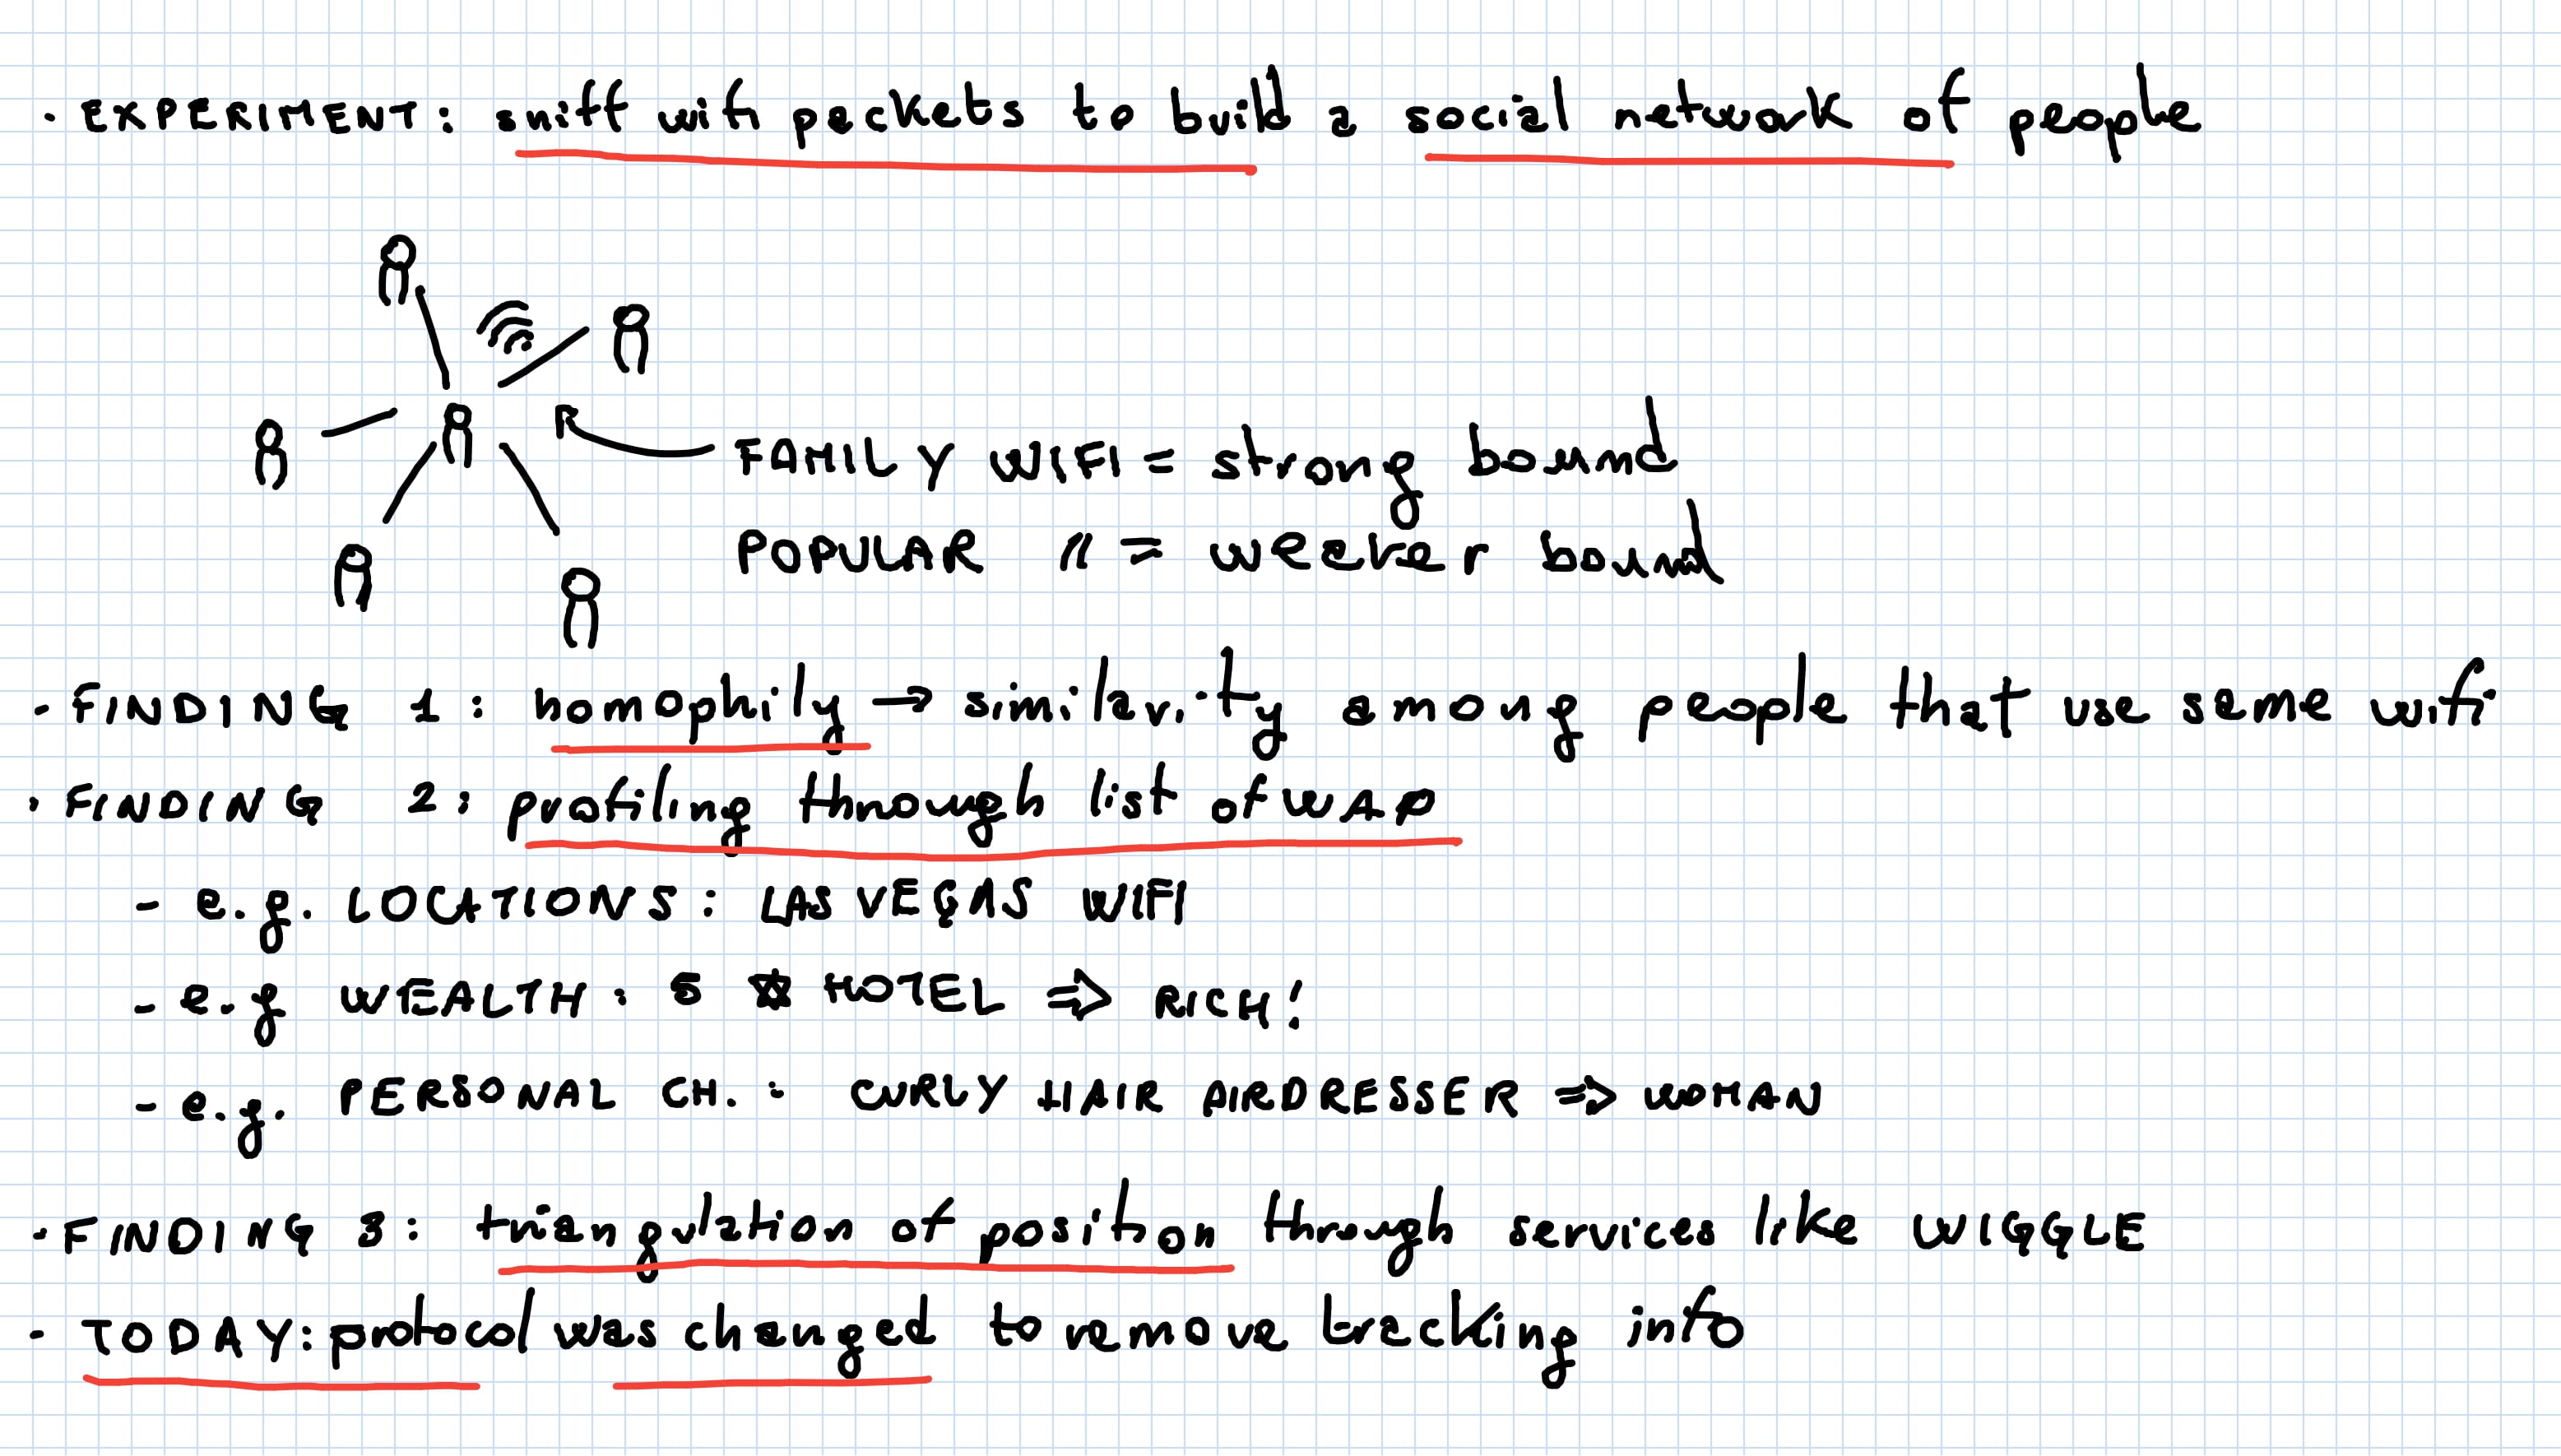 · EXPERIMENT: sniff wifi packets to build a social network of people
FAMILY WIFI = strong bound
POPULAR " = weaker bound
· FINDING 1: homophily → similarity among people that use same wifi
· FINDING 2: profiling through list of WAP
- e.g. LOCATIONS: LAS VEGAS WIFI
- e.g WEALTH: 5 ☆ HOTEL ⇒ RICH!
- e.g. PERSONAL CH. : CURLY HAIR AIRDRESSER ⇒ WOMAN
· FINDING 3: triangulation of position through services like WIGGLE
· TODAY: protocol was changed to remove tracking info